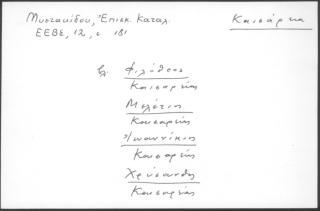 Μυστακίδου, Ἐπισκ. Καταλ.
ΕΕΒΣ, 12, σ 181
Καισάρεια
βλ. Φιλόθεος
Καισαρείας
Μελέτιος
Καισαρείας
Ἰωαννίκιος
Καισαρείας
Χρύσανθος
Καισαρείας